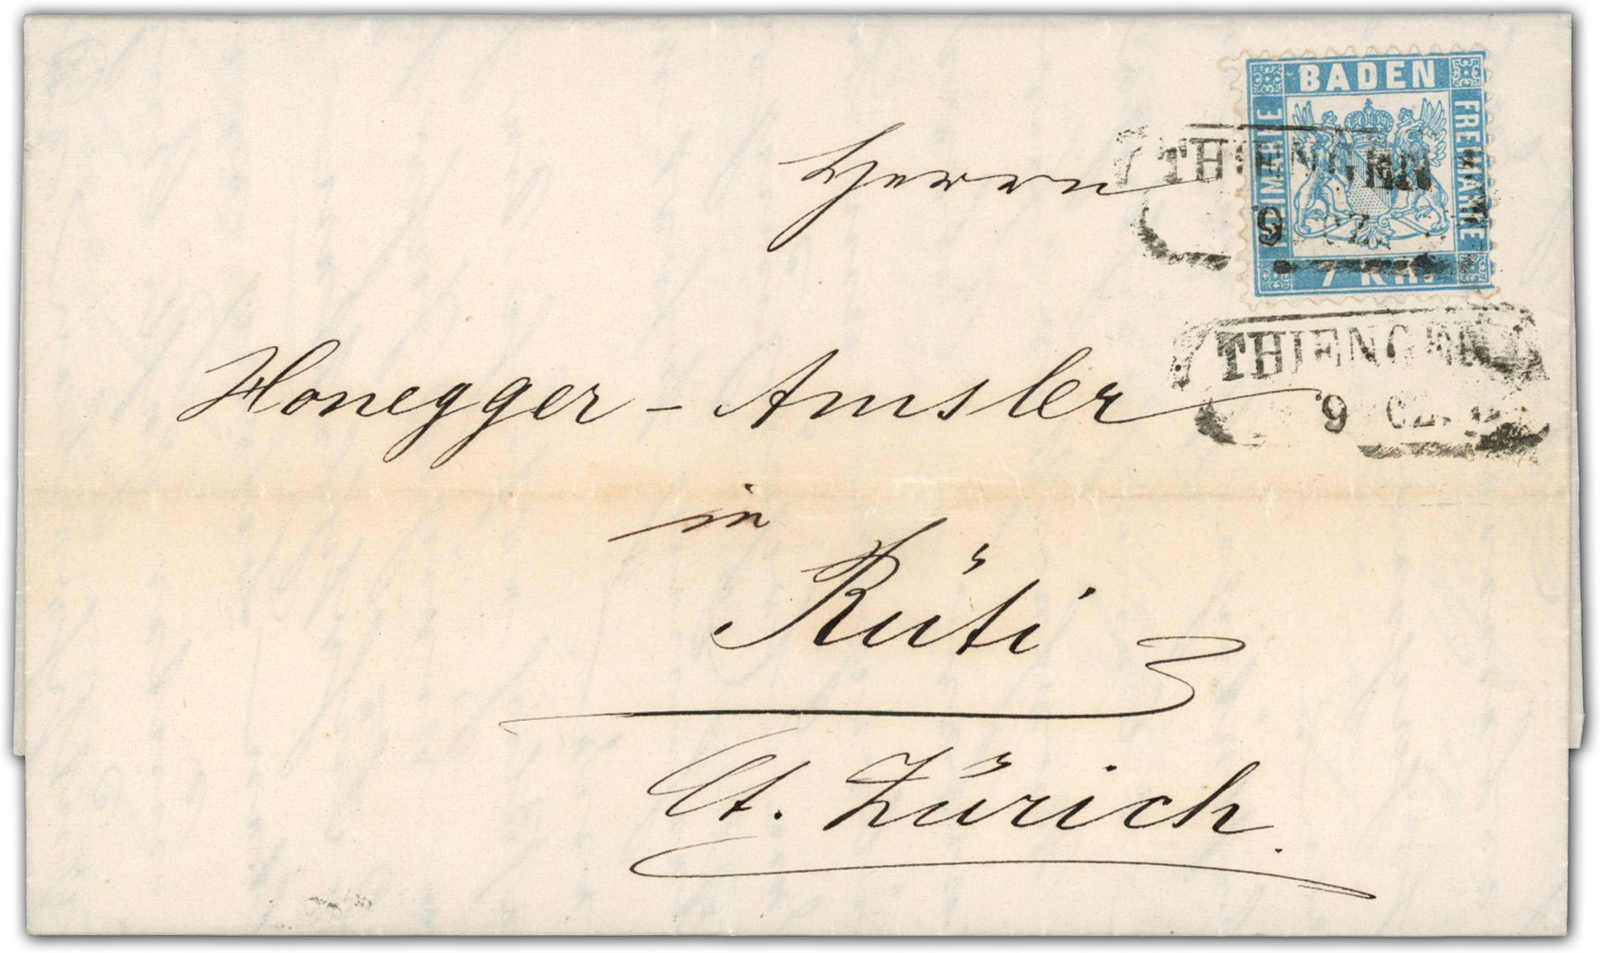 BADEN
FREIMARKE
FREIMARKE
7 KR.
THIENGEN
9
THIENGEN
9
Herrn
Honegger - Amsler
in
Rüti
Ct. Zürich.